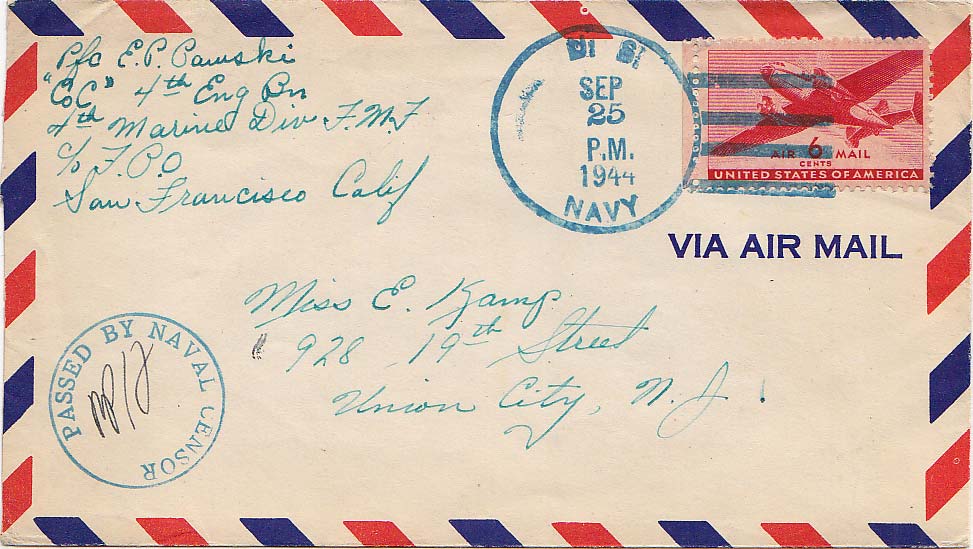 Pfc E.P. Pawski
"Co C" 4th Eng Bn
4th Marine Div F.M.F
c/o F.P.O
San Francisco Calif
SEP
25
P.M.
1944
NAVY
AIR 6 MAIL
CENTS
UNITED STATES OF AMERICA
VIA AIR MAIL
Miss E. Kamp
928 19th Street
Union City, N.J.
PASSED BY NAVAL CENSOR